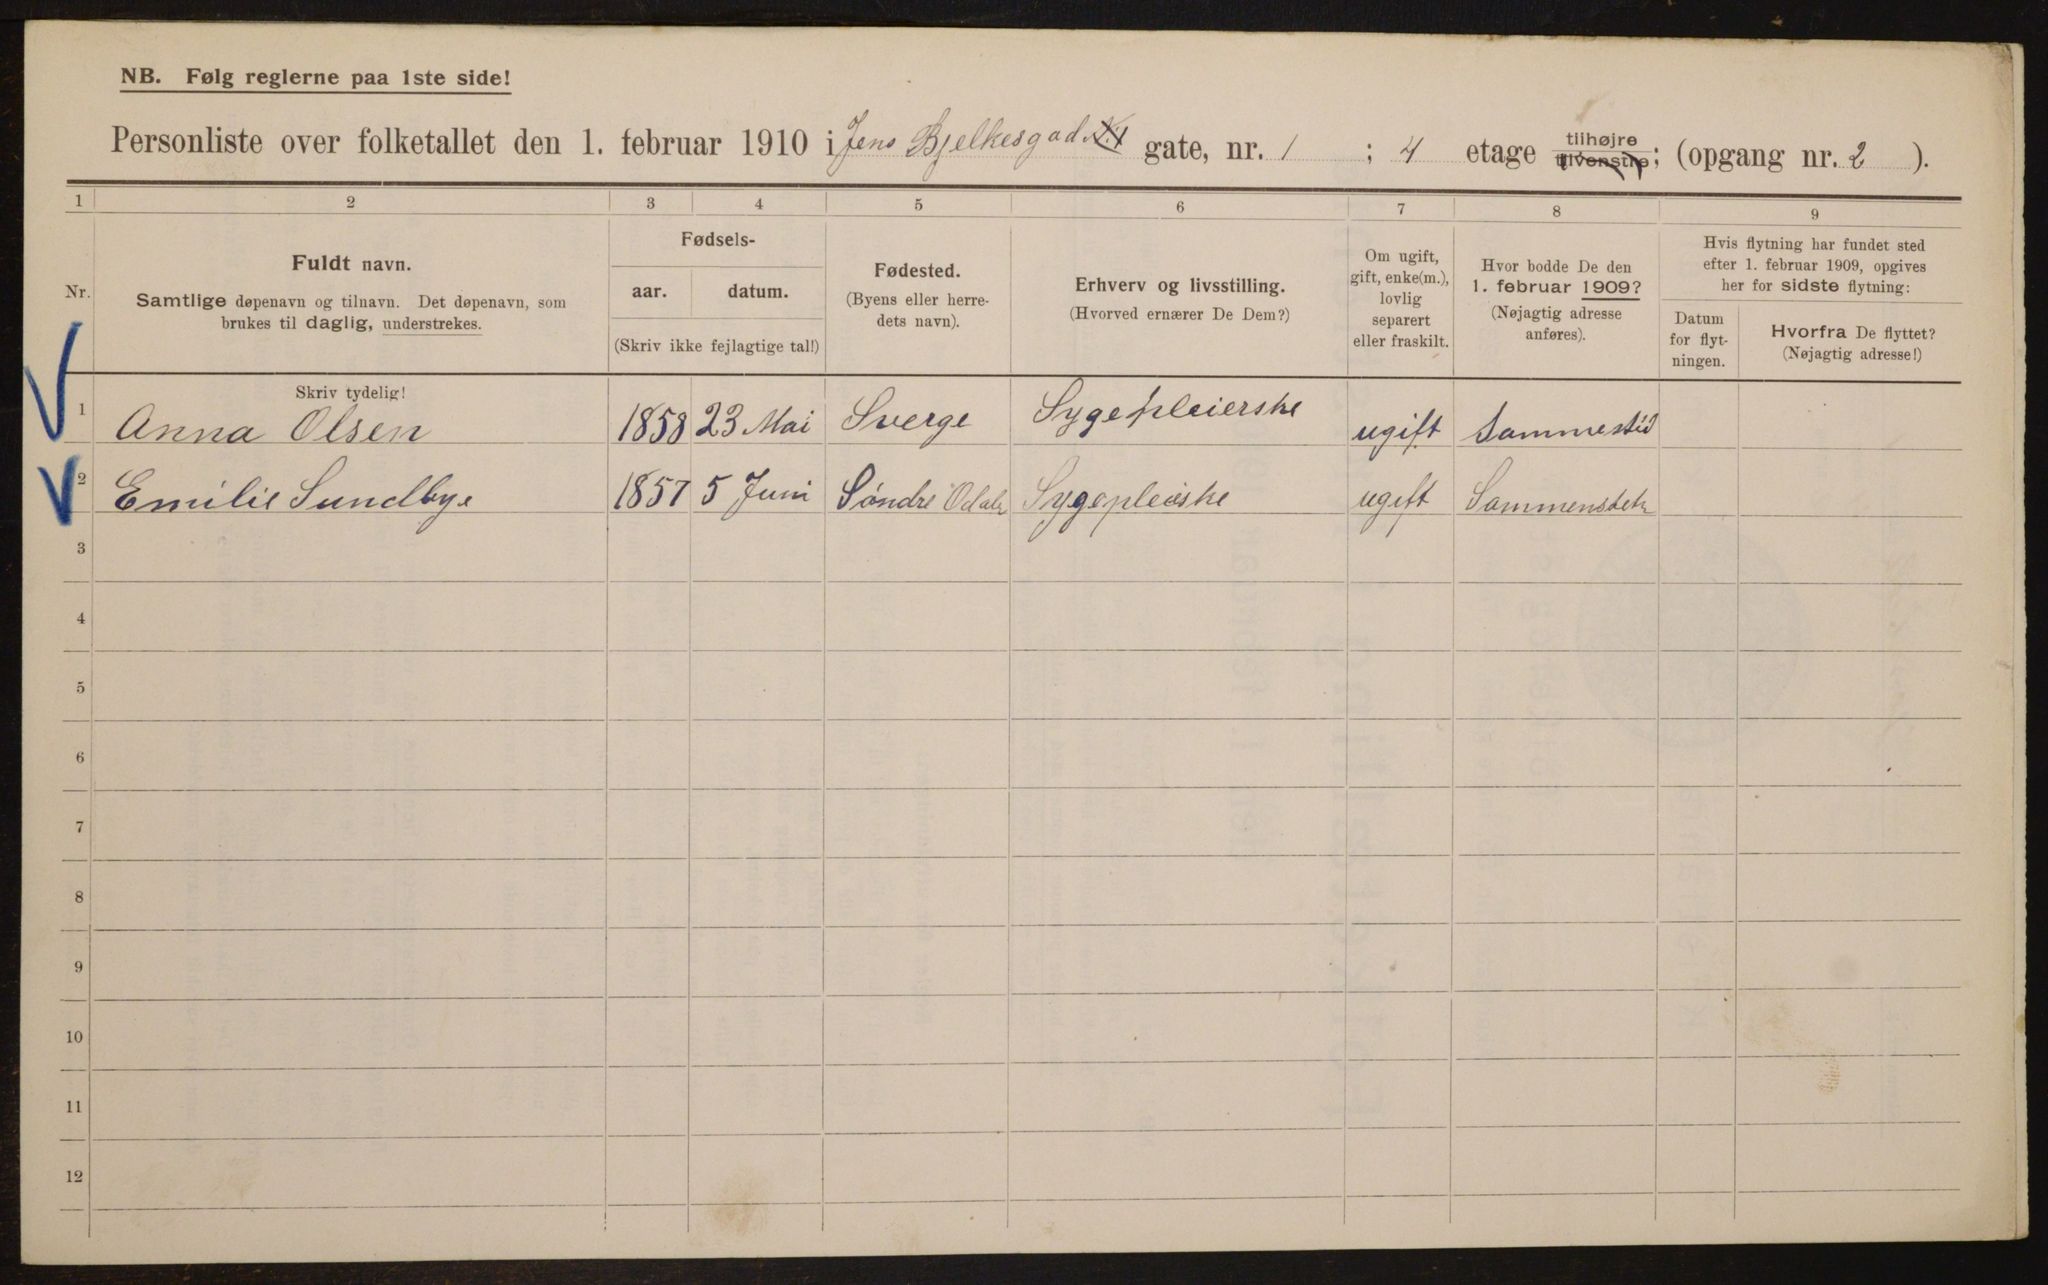 NB. Følg reglerne paa 1ste side!
Personliste over folketallet den 1. februar 1910 i Jens Bjelkesgad gate, nr. 1 ; 4 etage tilhøjre tilvenstre; (opgang nr. 2 ).
1 2 3 4 5 6 7 8 9
Nr.
Fuldt navn.
Samtlige døpenavn og tilnavn. Det døpenavn, som
brukes til daglig, understrekes.
Fødsels-
aar. datum.
(Skriv ikke fejlagtige tal!)
Fødested.
(Byens eller herre-
dets navn).
Erhverv og livsstilling.
(Hvorved ernærer De Dem?)
Om ugift,
gift, enke(m.),
lovlig
separert
eller fraskilt.
Hvor bodde De den
1. februar 1909?
(Nøjagtig adresse
anføres).
Hvis flytning har fundet sted
efter 1. februar 1909, opgives
her for sidste flytning:
Datum
for flyt-
ningen.
Hvorfra De flyttet?
(Nøjagtig adresse!)
Skriv tydelig!
1 Anna Olsen 1858 23 Mai Sverge Sygepleierske ugift Sammested
2 Emilie Sundbye 1857 5 Juni Söndre Odalen Sygepleieske ugift
3
4
5
6
7
8
9
10
11
12